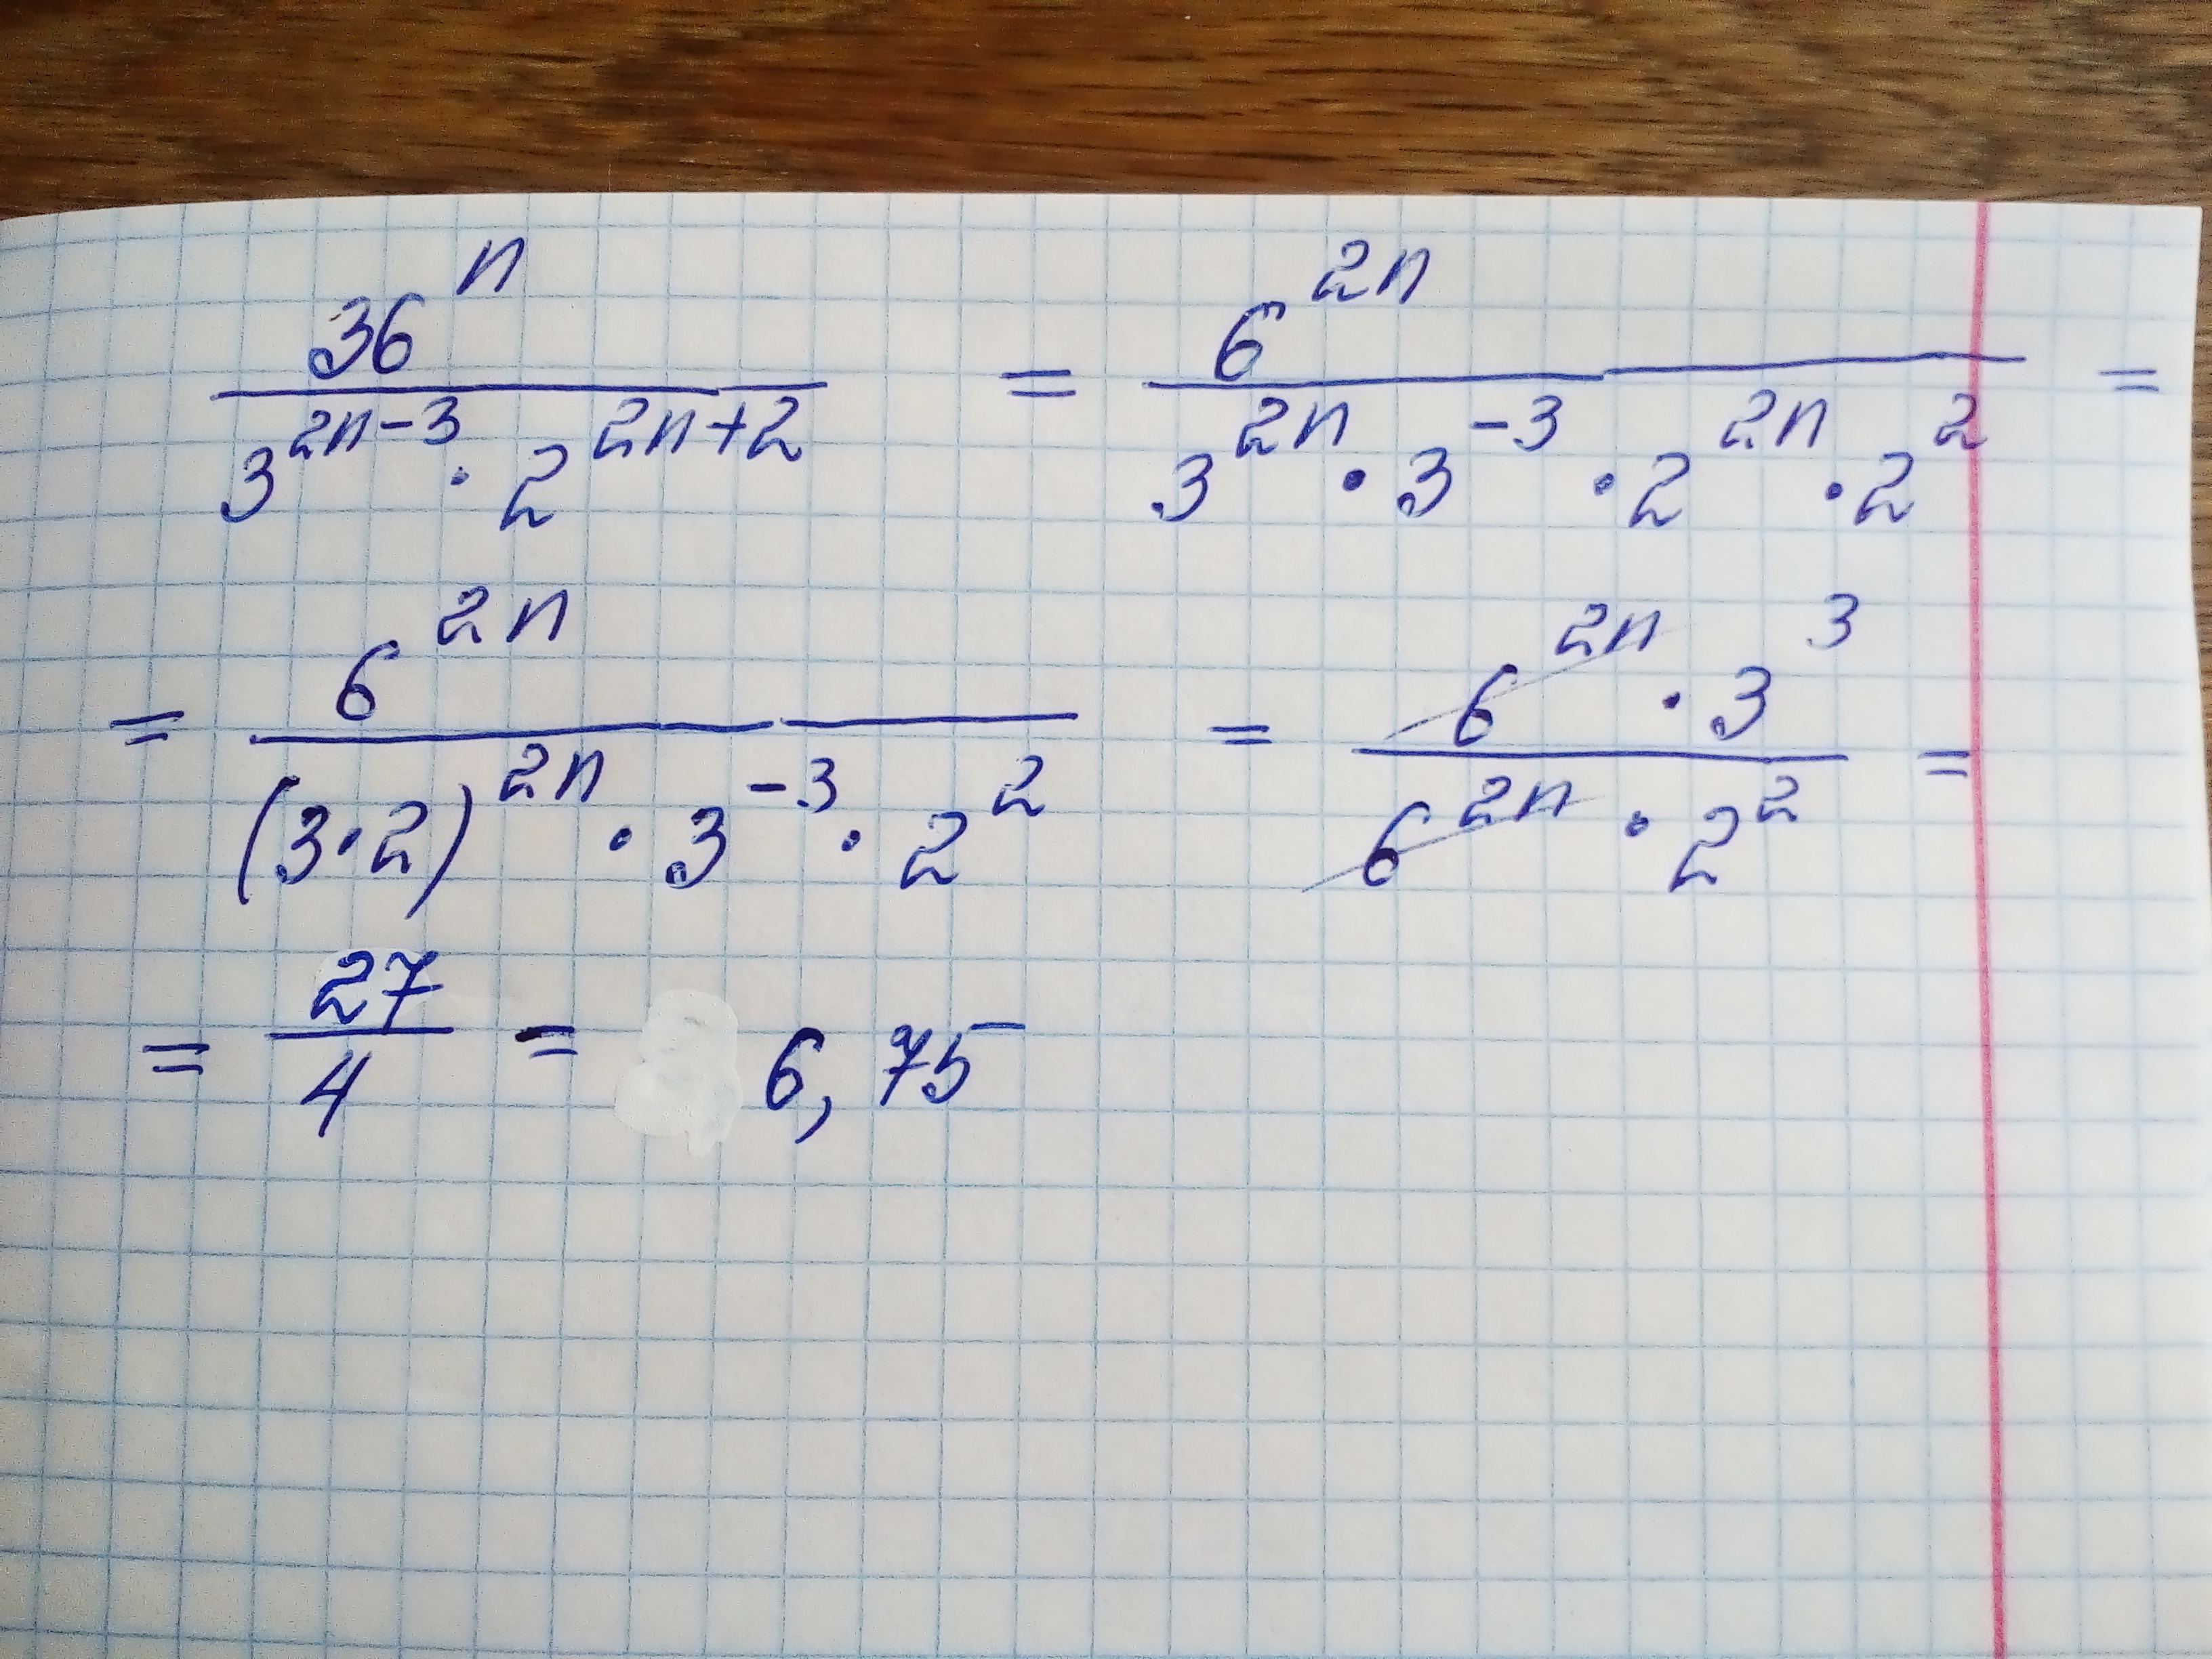 36^n / (3^(2n-3) · 2^(2n+2)) = 6^(2n) / (3^(2n) · 3^(-3) · 2^(2n) · 2^2) =
= 6^(2n) / ((3·2)^(2n) · 3^(-3) · 2^2) = (6^(2n) · 3^3) / (6^(2n) · 2^2) =
= 27 / 4 = 6,75